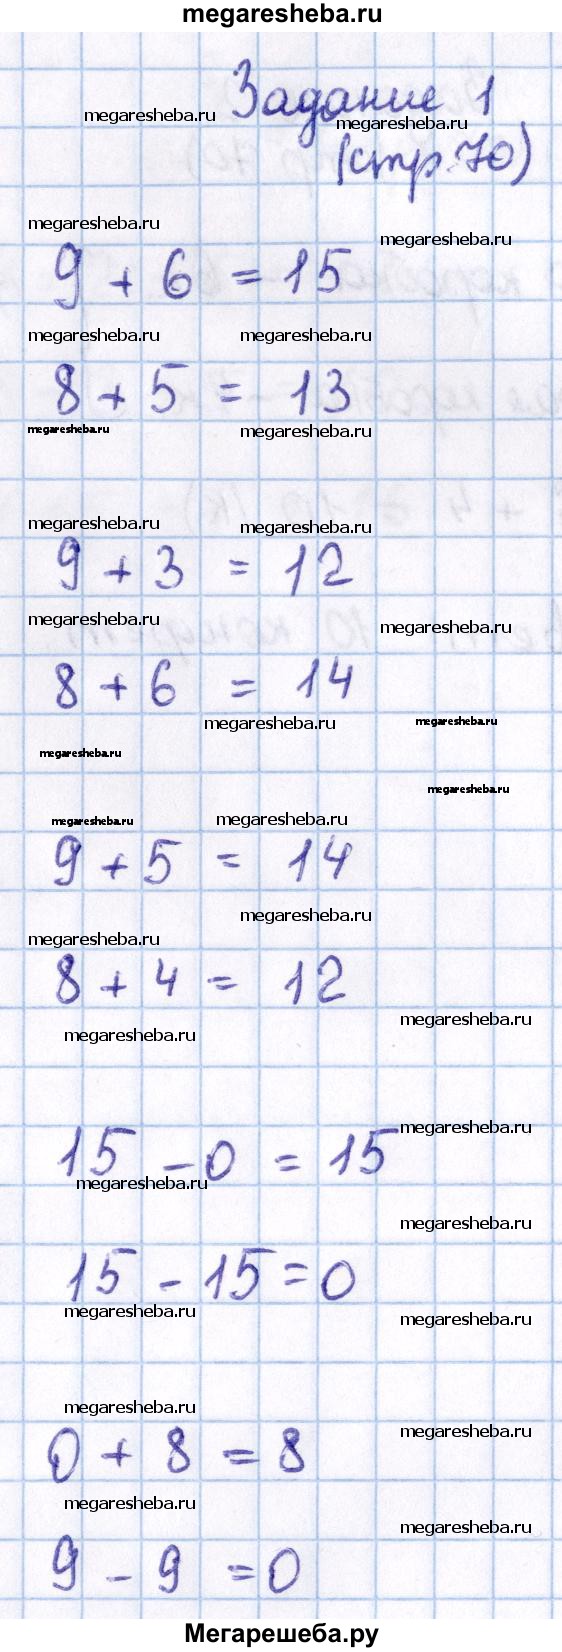 megaresheba.ru
Задание 1
megaresheba.ru
megaresheba.ru
(стр. 70)
megaresheba.ru
megaresheba.ru
9 + 6 = 15
megaresheba.ru megaresheba.ru
8 + 5 = 13
megaresheba.ru megaresheba.ru
megaresheba.ru megaresheba.ru
9 + 3 = 12
megaresheba.ru megaresheba.ru
8 + 6 = 14
megaresheba.ru megaresheba.ru
megaresheba.ru
megaresheba.ru
megaresheba.ru megaresheba.ru
9 + 5 = 14
megaresheba.ru
megaresheba.ru
8 + 4 = 12
megaresheba.ru
megaresheba.ru
megaresheba.ru
15 - 0 = 15
megaresheba.ru
megaresheba.ru
15 - 15 = 0
megaresheba.ru
megaresheba.ru
megaresheba.ru
megaresheba.ru
0 + 8 = 8
megaresheba.ru
megaresheba.ru
9 - 9 = 0
Мегарешеба.ру